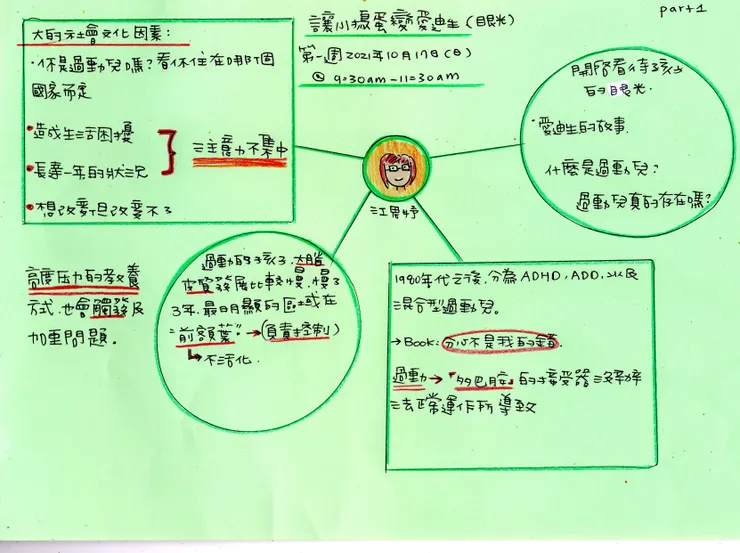 part 1
讓小搗蛋變愛迪生(眼光)
第一週2021年10月17日(日)
@ 9:30am-11:30am
大的社會文化因素:
·你是過動兒嗎?看你住在哪個
國家而定
·造成生活困擾
·長達一年的狀況
·想改變但改變不了
注意力不集中
開啓看待孩子
的眼光.
·愛迪生的故事.
什麼是過動兒?
過動兒真的存在嗎?
高度压力的教養
方式也會觸發及
加重問題。
過動的孩子,大腦
皮質發展比較慢,慢了
3年,最明顯的區域在
"前額葉"→(負責控制)
↳不活化.
1980年代之後,分為ADHD,ADD,以及
混合型過動兒。
→Book:分心不是我的錯.
過動→「多巴胺」的接受器沒辦
法正常運作所導致